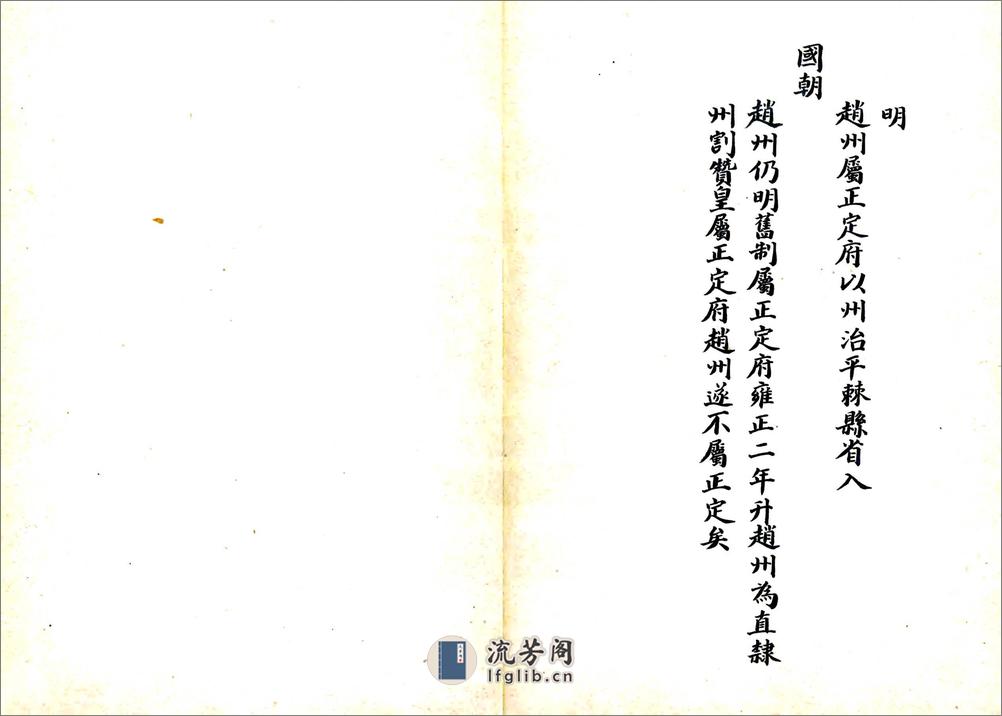 明
趙州屬正定府以州治平棘縣省入
國朝
趙州仍明舊制屬正定府雍正二年升趙州為直隸
州割贊皇屬正定府趙州遂不屬正定矣
流芳阁
lfglib.cn